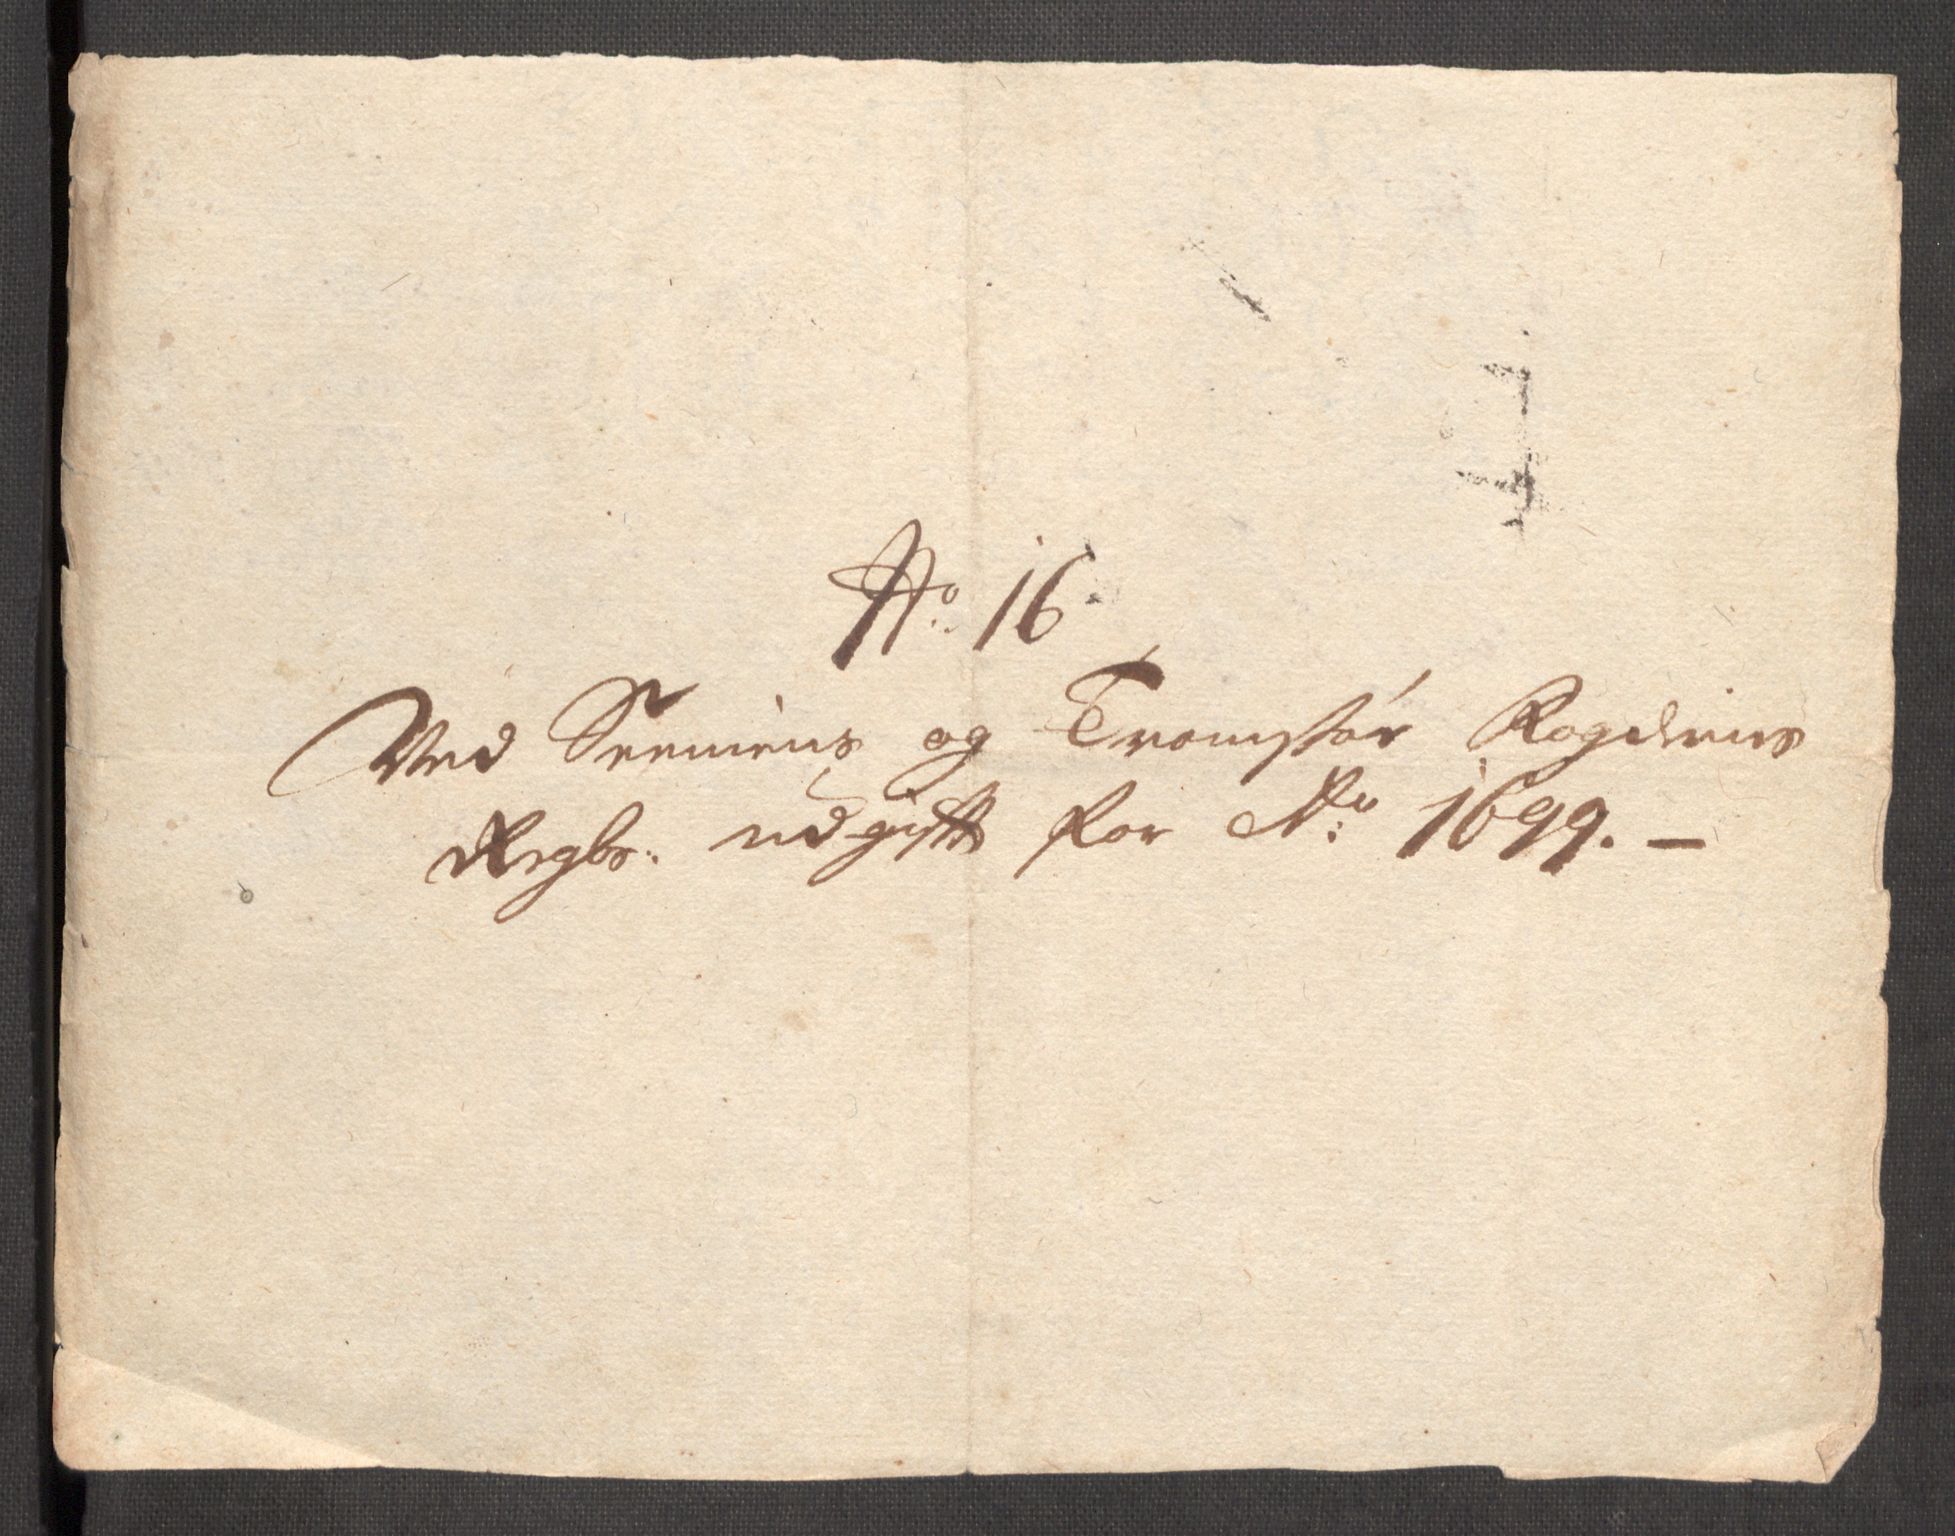 No: 16
Ved Senniens og Tromssøe Fogderies
Regb: udgift for Ao: 1699. –